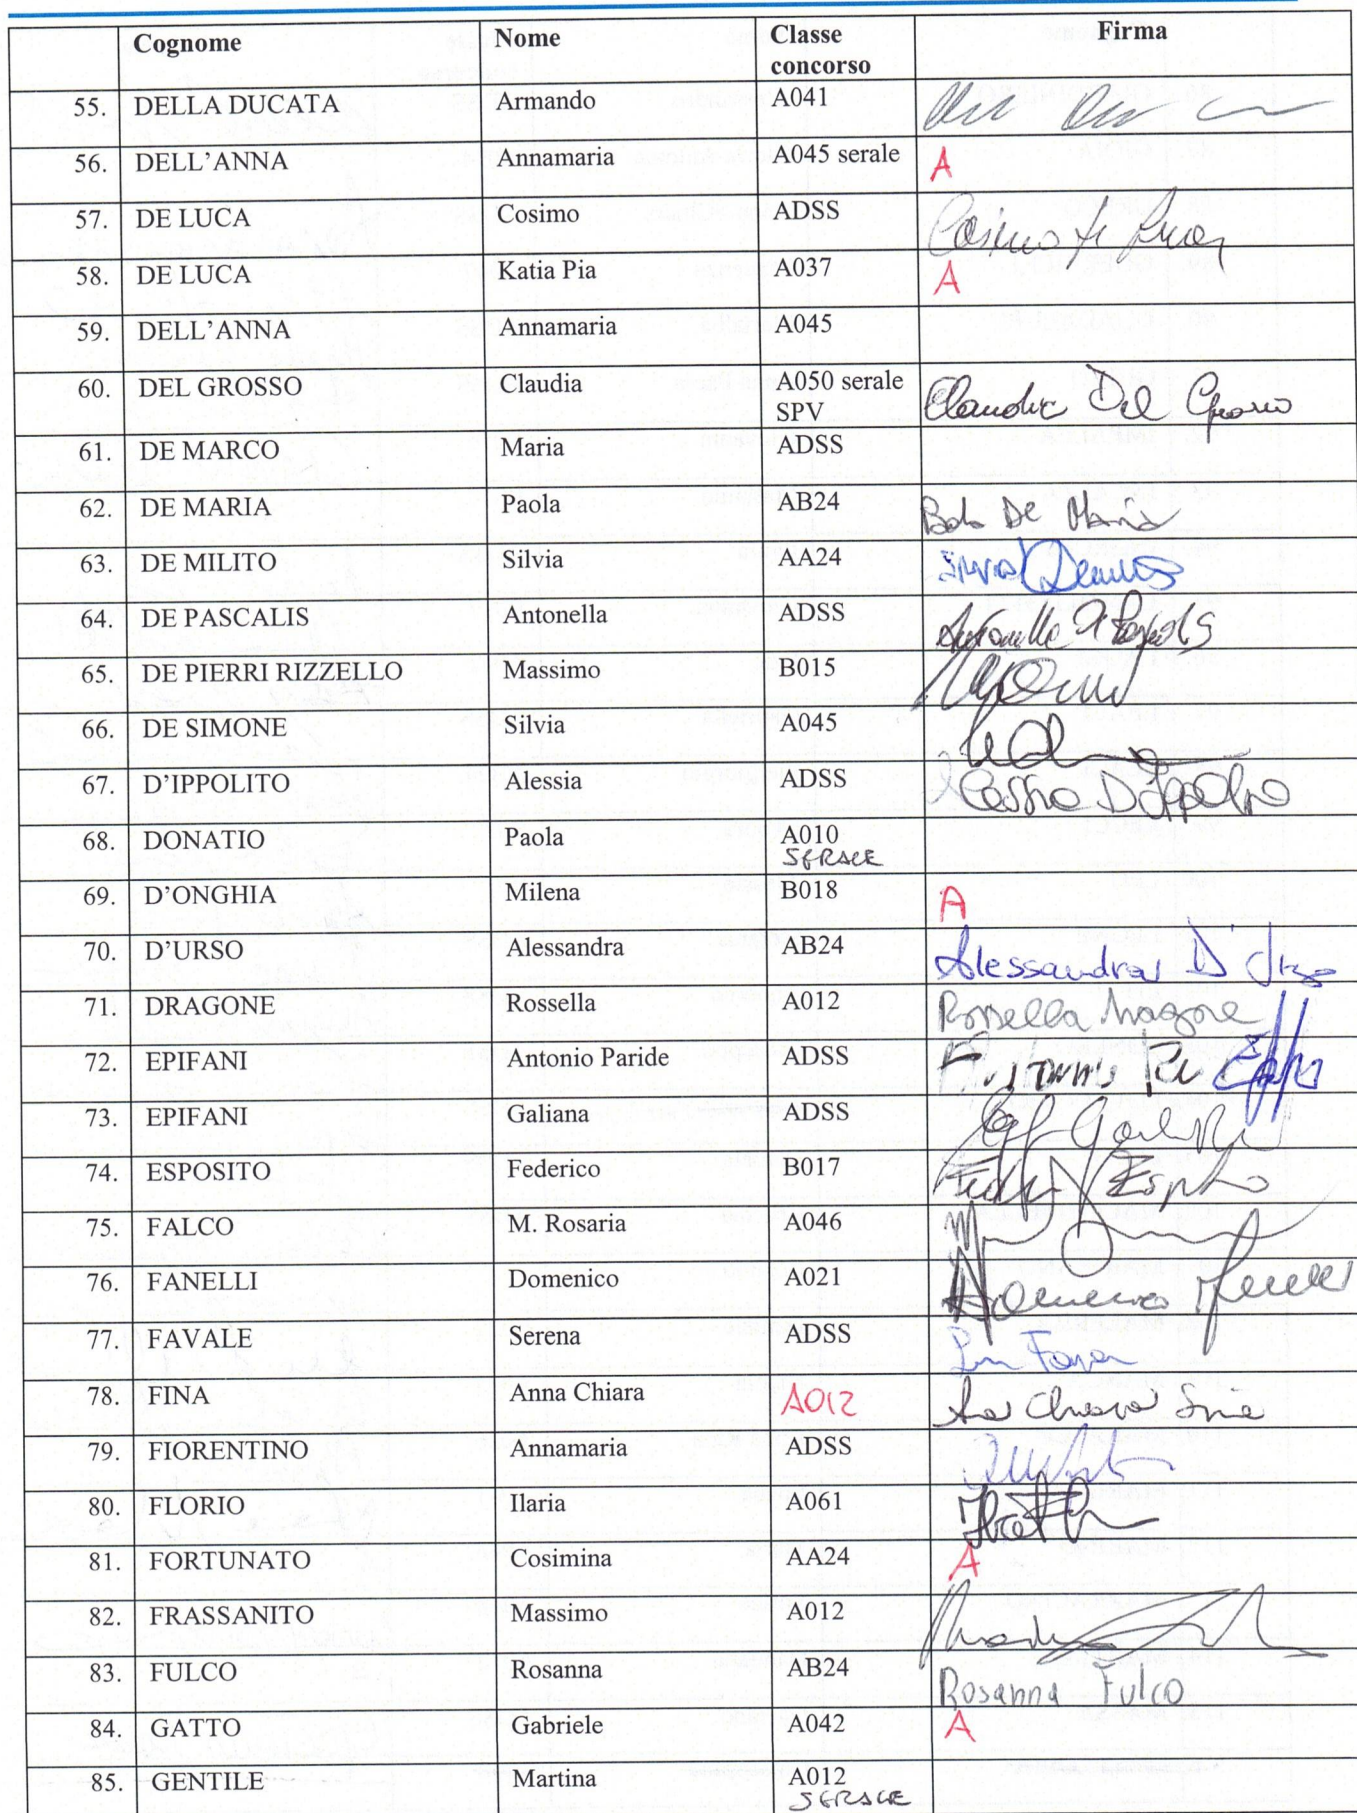 Cognome Nome Classe concorso Firma
55. DELLA DUCATA Armando A041
56. DELL'ANNA Annamaria A045 serale A
57. DE LUCA Cosimo ADSS Cosimo de Luca
58. DE LUCA Katia Pia A037 A
59. DELL'ANNA Annamaria A045
60. DEL GROSSO Claudia A050 serale SPV Claudia Del Grosso
61. DE MARCO Maria ADSS
62. DE MARIA Paola AB24 Paola De Maria
63. DE MILITO Silvia AA24 Silvia
64. DE PASCALIS Antonella ADSS Antonella
65. DE PIERRI RIZZELLO Massimo B015
66. DE SIMONE Silvia A045
67. D'IPPOLITO Alessia ADSS Alessia D'Ippolito
68. DONATIO Paola A010 SERALE
69. D'ONGHIA Milena B018 A
70. D'URSO Alessandra AB24 Alessandra D'Urso
71. DRAGONE Rossella A012 Rossella Dragone
72. EPIFANI Antonio Paride ADSS
73. EPIFANI Galiana ADSS
74. ESPOSITO Federico B017 Esposito
75. FALCO M. Rosaria A046
76. FANELLI Domenico A021 Domenico Fanelli
77. FAVALE Serena ADSS
78. FINA Anna Chiara A012 Chiara Fina
79. FIORENTINO Annamaria ADSS
80. FLORIO Ilaria A061
81. FORTUNATO Cosimina AA24 A
82. FRASSANITO Massimo A012
83. FULCO Rosanna AB24 Rosanna Fulco
84. GATTO Gabriele A042 A
85. GENTILE Martina A012 SERALE